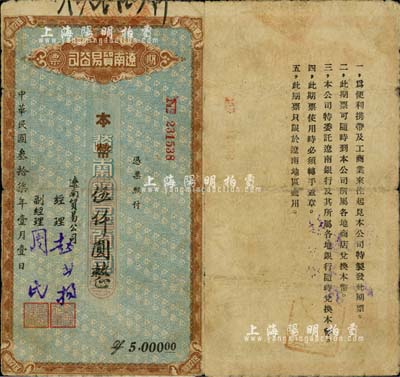 上海陽明拍賣
期票
遼南貿易公司
№ 231538
憑票即付
本幣伍仟圓整
遼南貿易公司
經理
副經理 周民
中華民國叁拾柒年壹月壹日
5.00000
上海陽明拍賣
一，爲便利携帶及工商業來往起見本公司特製發此期票。
二，此期票可隨時到本公司所屬各地商店兌換本幣。
三，本公司特委託遼南銀行及其所屬各地銀行隨時兌換本幣。
四，此期票使用時必須轉手蓋章。
五，此期票只限於遼南地區適用。
上海陽明拍賣
上海陽明拍賣